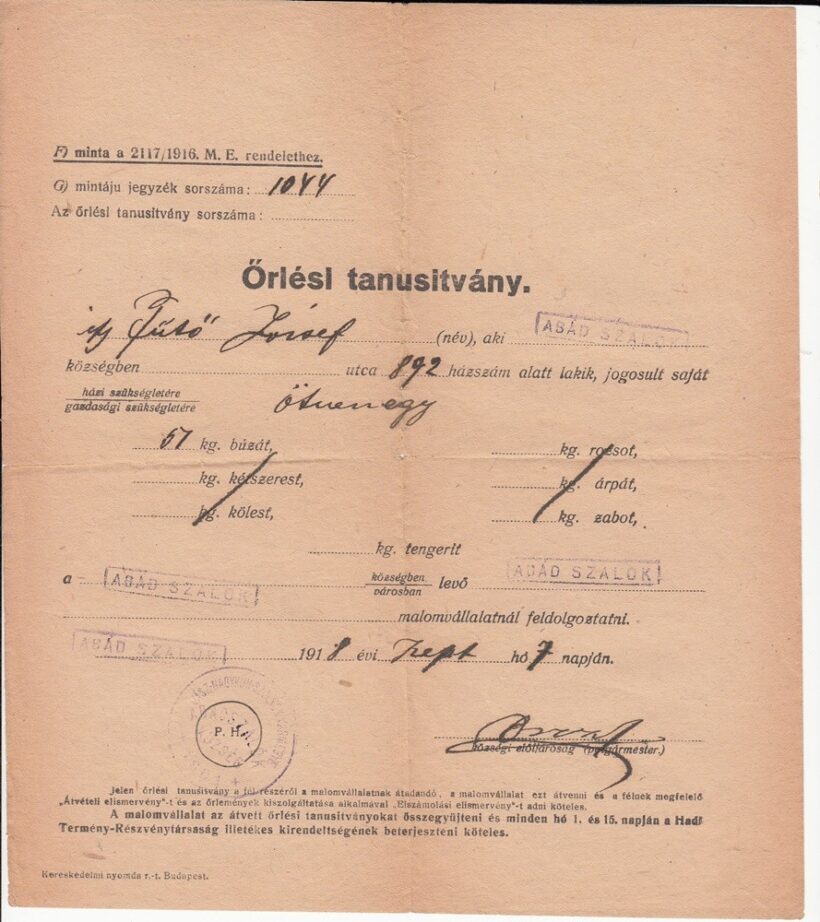 F) minta a 2117/1916. M. E. rendelethez.
G) mintáju jegyzék sorszáma: 1044
Az őrlési tanusitvány sorszáma:
Őrlési tanusitvány.
ifj Fűtő József (név), aki ABÁD SZALÓK
községben utca 892 házszám alatt lakik, jogosult saját
házi szükségletére
gazdasági szükségletére
Ötvenegy
51 kg. búzát, kg. rozsot,
kg. kétszerest, kg. árpát,
kg. kölest, kg. zabot,
kg. tengerit
a ABÁD SZALÓK községben városban levő ABÁD SZALÓK
malomvállalatnál feldolgoztatni.
ABÁD SZALÓK 1918 évi Szept hó 7 napján.
P. H.
községi elöljáróság (polgármester.)
Jelen őrlési tanusitvány a fél részéről a malomvállalatnak átadandó, a malomvállalat ezt átvenni és a félnek megfelelő
„Átvételi elismervény"-t és az őrlemények kiszolgáltatása alkalmával „Elszámolási elismervény"-t adni köteles.
A malomvállalat az átvett őrlési tanusitványokat összegyüjteni és minden hó 1. és 15. napján a Hadi
Termény-Részvénytársaság illetékes kirendeltségének beterjeszteni köteles.
Kereskedelmi nyomda r.-t. Budapest.